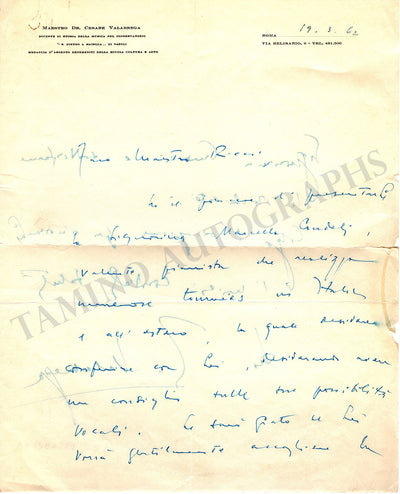 MAESTRO DR. CESARE VALABREGA
DOCENTE DI STORIA DELLA MUSICA NEL CONSERVATORIO
"S. PIETRO A MAJELLA" DI NAPOLI
MEDAGLIA D'ARGENTO BENEMERITI DELLA SCUOLA CULTURA E ARTE
19.3.62
ROMA
VIA BELISARIO, 6 - TEL. 481.500
Caro Maestro Ricci,
ho il piacere di presentarLe
la Signorina Marcella Candeli,
valente pianista che realizza
numerose tournées in Italia
e all'estero, la quale desidera
conferire con Lei, desiderando avere
un consiglio sulle sue possibilità
vocali. Le sarò grato se Lei
vorrà gentilmente accogliere la
TAMINO AUTOGRAPHS